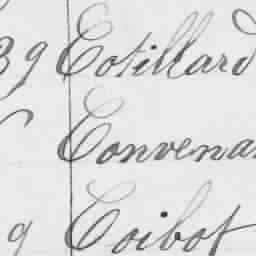 39 Cotillard
Convenan
9 Coibot